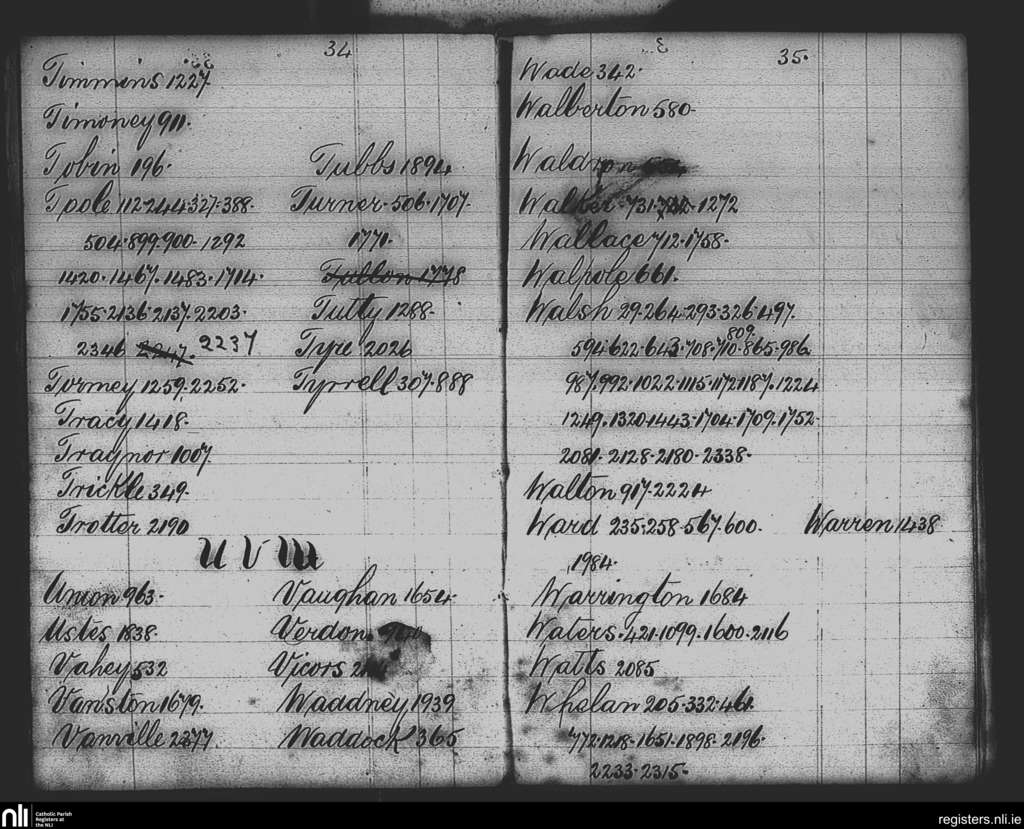 34
Timmins 1227
Timoney 911.
Tobin 196.
Toole 112.244.327.388.
504.899.900.1292
1420.1467.1483.1714.
1755.2136.2137.2203.
2346 2247. 2237
Tormey 1259.2252.
Tracy 1418.
Traynor 1007.
Trickle 349.
Trotter 2190
Tubbs 1894
Turner. 506.1707.
1771.
Tullon 1778
Tutty 1288.
Tyre 2026
Tyrrell 307.888
U V W
Union 963.
Ustes 1838.
Vahey 532
Vanston 1679.
Vanville 2377.
Vaughan 1654.
Verdon.
Vicors
Waddney 1939
Waddock 365
35.
Wade 342.
Walberton 580.
Waldron
Walker. 731. 1272
Wallace 712.1758.
Walpole 661.
Walsh 29.264.293.326.497.
809.
594.622.643.708.710.865.986.
987.992.1022.1115.1172.1187.1224
1249.1320.1443.1704.1709.1752.
2081.2128.2180.2338.
Walton 917.2224
Ward 235.258.567.600.
1984.
Warren 1438
Warrington 1684
Waters. 421.1099.1600.2116
Watts 2085
Whelan 205.332.461.
772.1218.1651.1898.2196.
2233.2315.
nli
Catholic Parish
Registers at
the NLI
registers.nli.ie